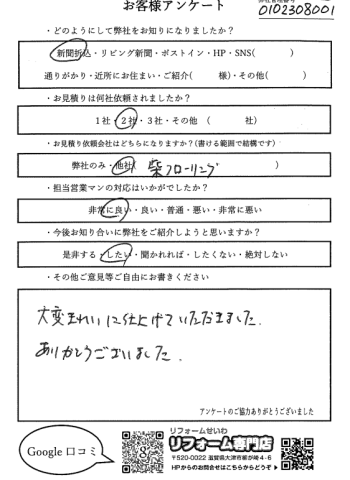 お客様アンケート
0102308001
・どのようにして弊社をお知りになりましたか?
新聞折込・リビング新聞・ポストイン・HP・SNS(　　　)
通りがかり・近所にお住まい・ご紹介(　　　様)・その他(　　　)
・お見積りは何社依頼されましたか?
1社・2社・3社・その他 (　　　社)
・お見積り依頼会社はどちらになりますか?(書ける範囲で結構です)
弊社のみ・他社( 柴フローリング )
・担当営業マンの対応はいかがでしたか?
非常に良い・良い・普通・悪い・非常に悪い
・今後お知り合いに弊社をご紹介しようと思いますか?
是非する・したい・聞かれれば・したくない・絶対しない
・その他ご意見等ご自由にお書きください
大変きれいに仕上げていただきました.
ありがとうございました.
アンケートのご協力ありがとうございました
Google 口コミ
リフォームせいわ
リフォーム専門店
〒520-0022 滋賀県大津市柳が崎4-6
HPからのお問合せはこちらからどうぞ